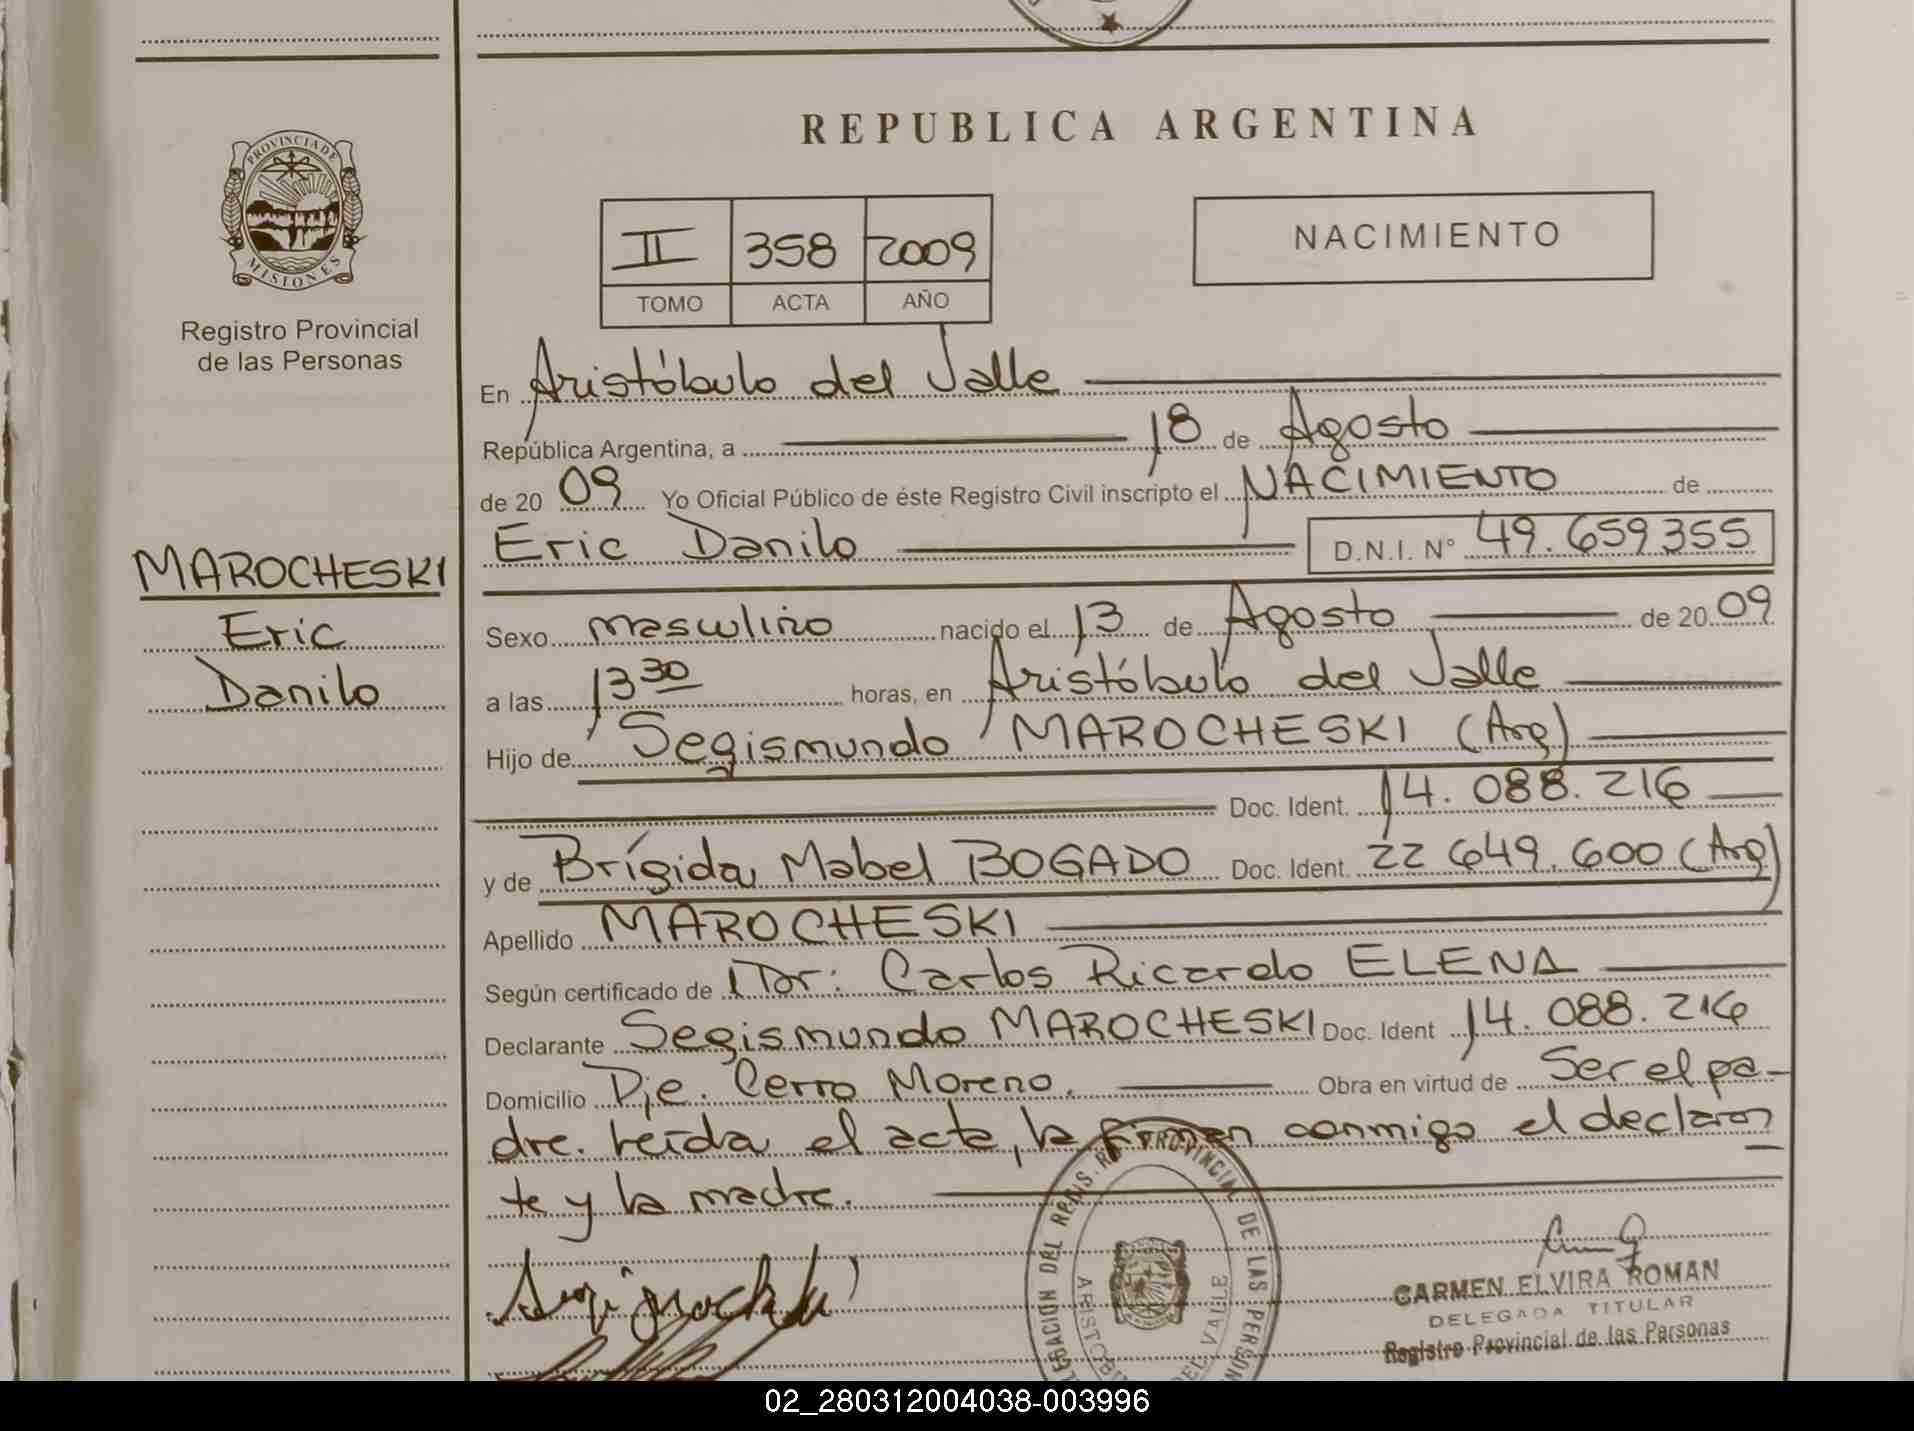 REPUBLICA ARGENTINA
PROVINCIA DE
MISIONES
Registro Provincial
de las Personas
II 358 2009
TOMO ACTA AÑO
NACIMIENTO
En Aristóbulo del Valle
República Argentina, a 18 de Agosto
de 2009 Yo Oficial Público de éste Registro Civil inscripto el NACIMIENTO de
Eric Danilo D.N.I. N° 49.659355
MAROCHESKI
Eric
Danilo
Sexo masculino nacido el 13 de Agosto de 2009
a las 13 30 horas, en Aristóbulo del Valle
Hijo de Segismundo MAROCHESKI (Arg)
Doc. Ident. 14.088.216
y de Brígida Mabel BOGADO Doc. Ident. 22 649.600 (Arg)
Apellido MAROCHESKI
Según certificado de Dr: Carlos Ricardo ELENA
Declarante Segismundo MAROCHESKI Doc. Ident 14.088.216
Domicilio Pje. Cerro Moreno. Obra en virtud de Ser el pa-
dre. leída el acta, la firman conmigo el declaran
te y la madre.
PROVINCIAL DE LAS PERSONAS
ARISTOBULO DEL VALLE
CARMEN ELVIRA ROMAN
DELEGADA TITULAR
Registro Provincial de las Personas
02_280312004038-003996